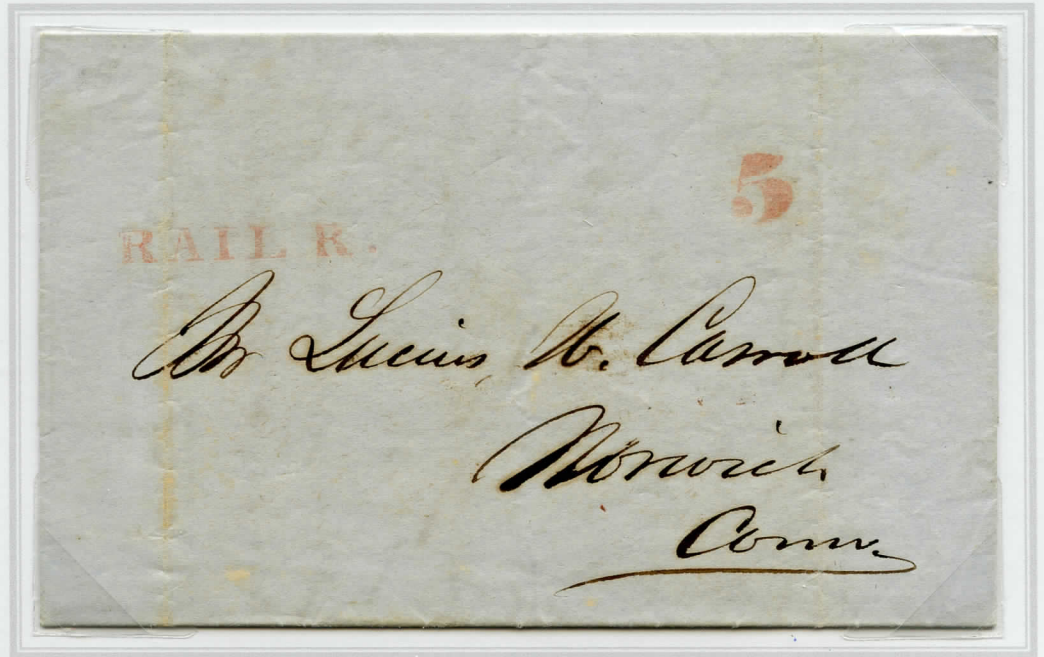 5
RAIL R.
Mr Lucius W. Carroll
Norwich
Conn.